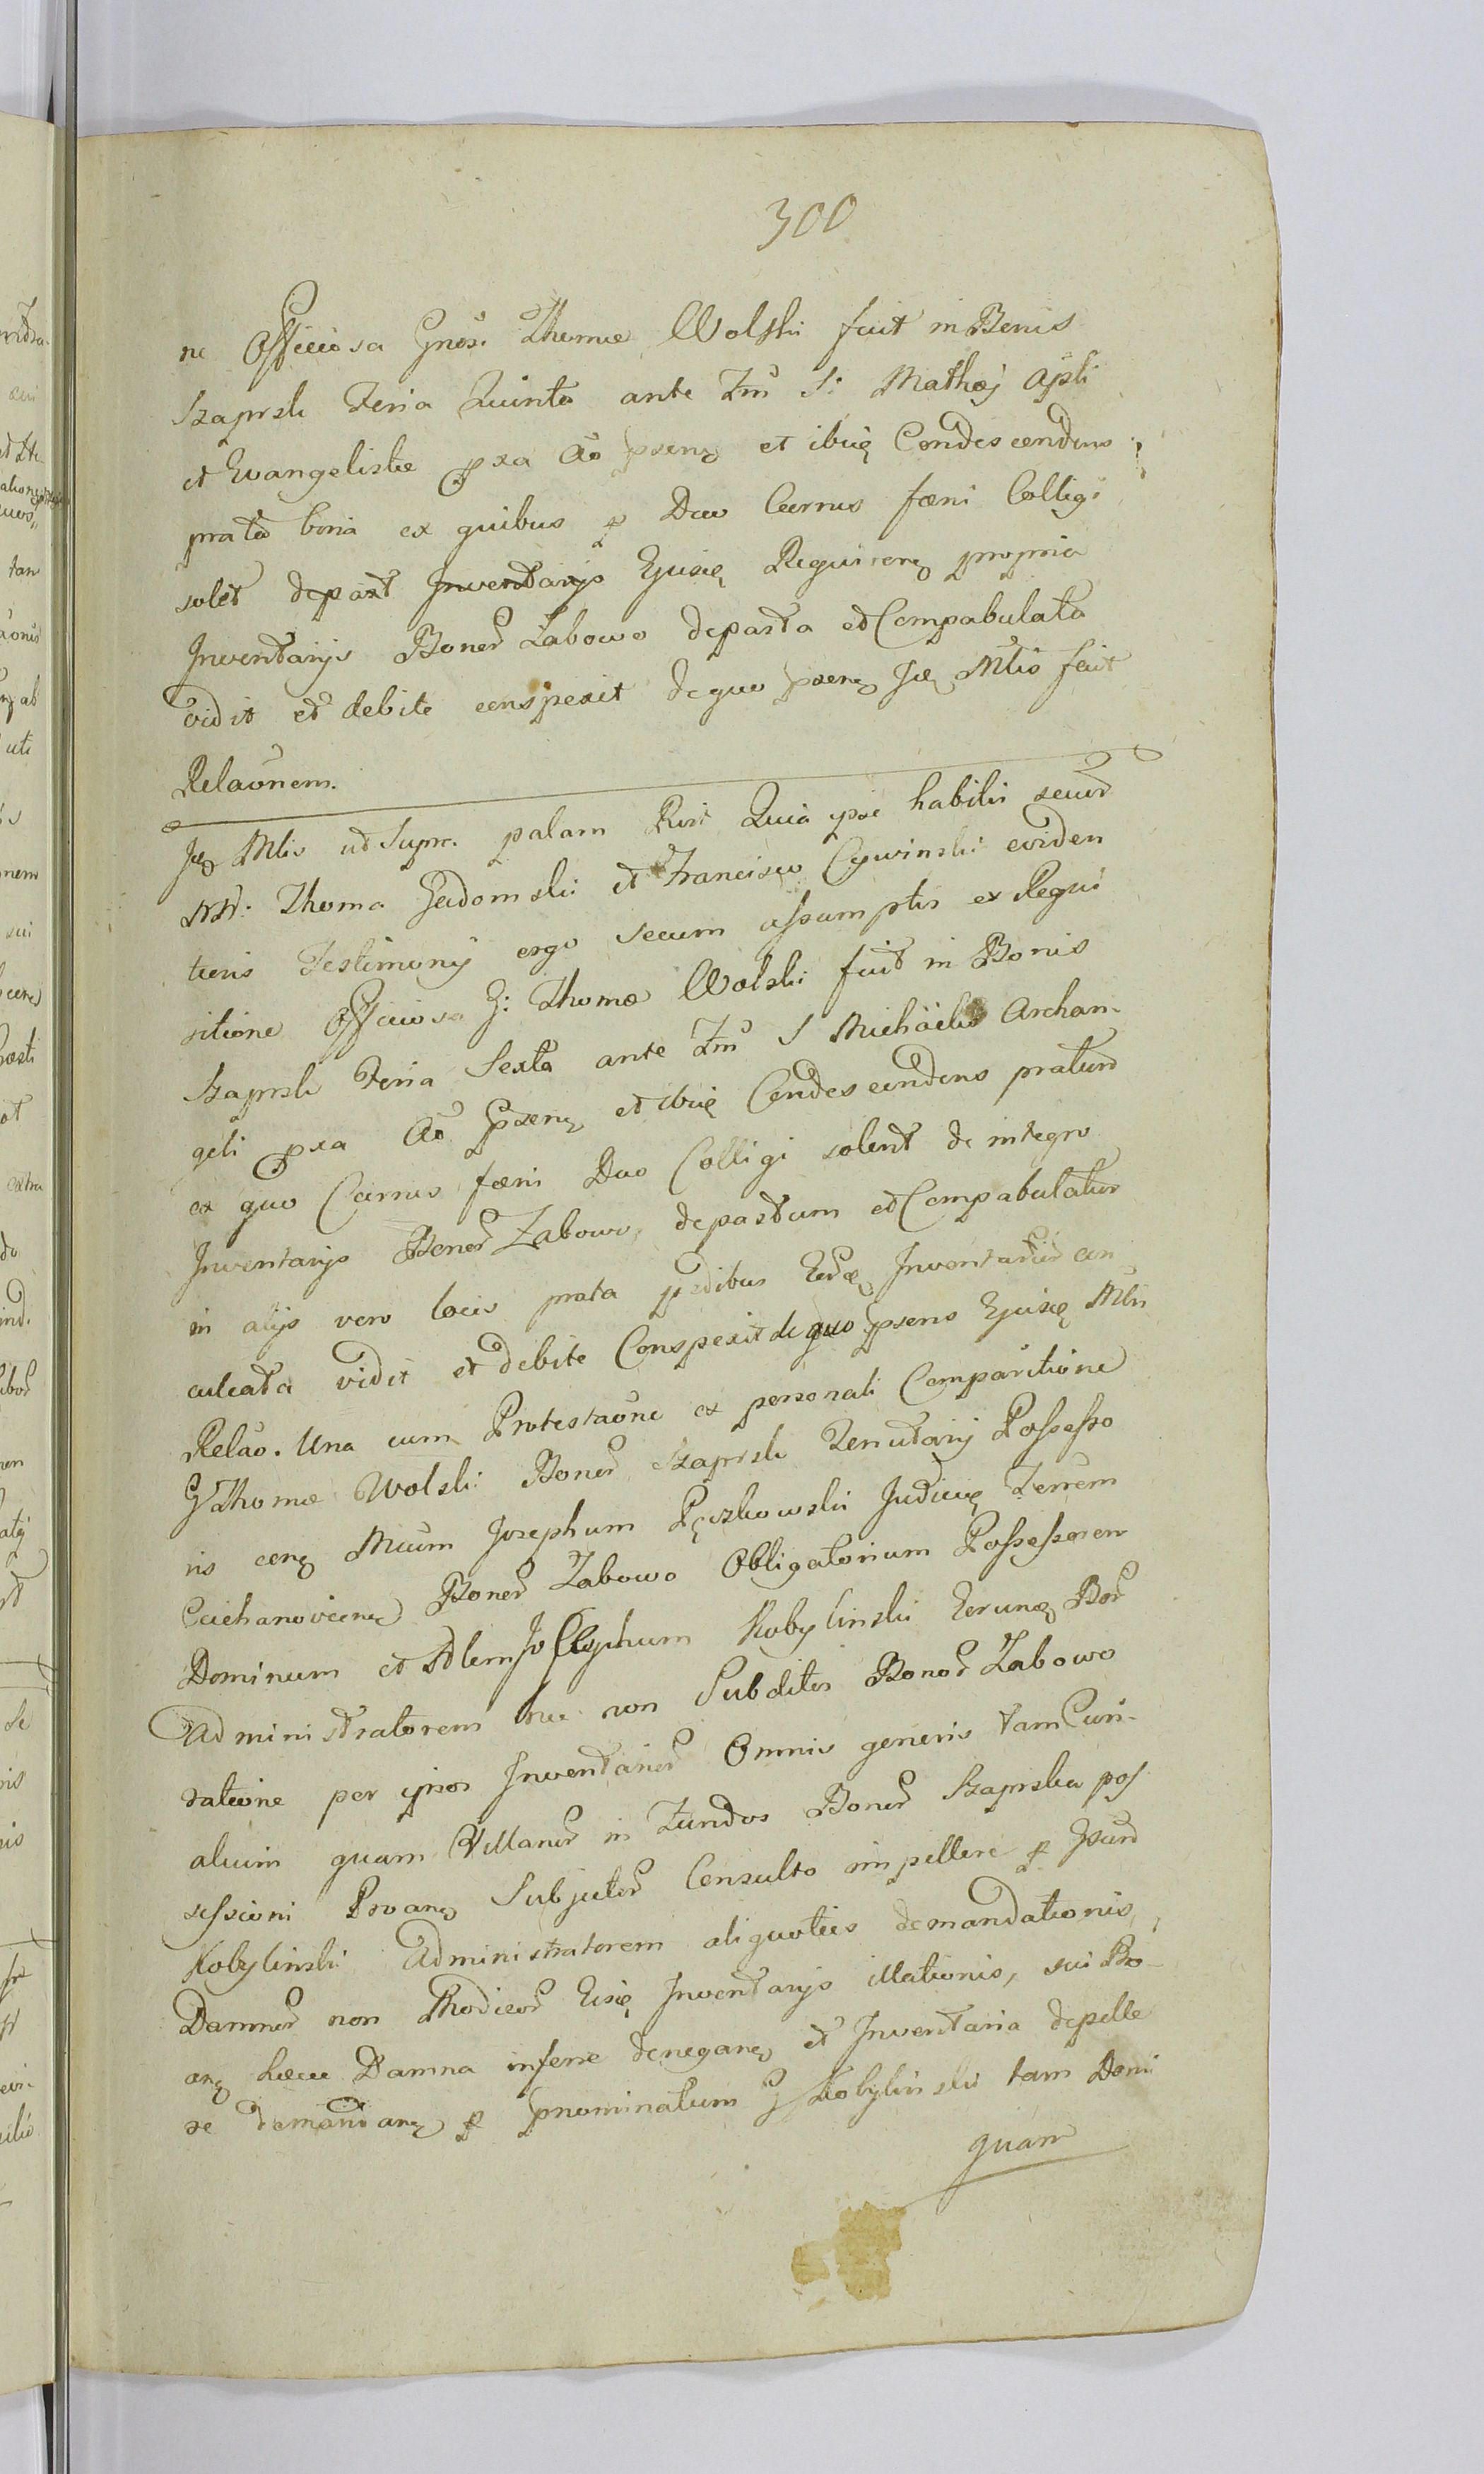 300
ne Officiosa Gnosi Thomæ Wolski fuit in Bonis
Szaprski Feria Quinta ante Fm̃ S: Mathæj Apsti
et Evangelistæ pxa Ao pxenę et ibię Condescendens
prata bona ex quibus p Duo Currus fæni Colligi
solet depast Inventarijs Ejusę Requirenę propria
Inventarijs Bonor Zabowo depasta et Compabulata
vidit et debite conspexit de quo pxenę Jdę Mlis fecit
Relaonem.
Jdę Mlis ut Supra palam Rext Quia ipse habitis secum
NN: Thoma Gadomski et Francisco Cywinski eviden
tioris Testimonij ergo secum assumptis ex Requi
sitione Officiosa G: Thomæ Wolski fuit in Bonis
Szaprski Feria Sexta ante Fm̃ S Michäelis Archan-
geli pxa Ao pxenę et ibię Condescendens pratum
ex quo Currus fæni Duo Colligi solent de integro
Inventarijs Bonor Zabowo, depastum et Compabulatum
in alijs vero locis prata pedibus Eordę Inventarior con
culcata vidit et debite Conspexit de quo pxens Ejusę Mlis
Relao. Una cum Protestaone ex personali Comparitione
G Thomæ Wolski Bonor Szaprski Tenutarij Possesso
ris conę Mcum Josephum Pęczkowski Judicię Terrem
Ciechanovienę Bonor Zabowo Obligatorium Possessorem
Dominum et Nlem Josephum Kobylinski Eorunę Bor
Administratorem nec non Subditos Bonor Zabowo
ratione per ipsos Inventarior Omnis generis tam Curi-
alium quam Villanor in Fundos Bonor Szaprska pos
sessioni Proanę Subjector Consulto impellere p Jsum
Kobylinski Administratorem aliquoties demandationis,
Damnor non Modicor Eisę Inventarijs illationis, sui Pro-
anę hæce Damna inferre deneganę et Inventaria depelle
re demandanę p pnominatum G Kobylinski tam Domi
quam